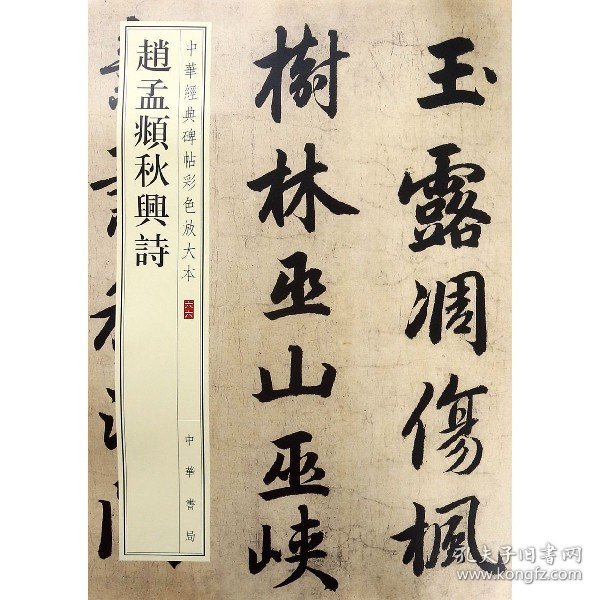 玉露凋傷楓
樹林巫山巫峽
中華經典碑帖彩色放大本
六六
趙孟頫秋興詩
中華書局
孔夫子旧书网
www.kongfz.com